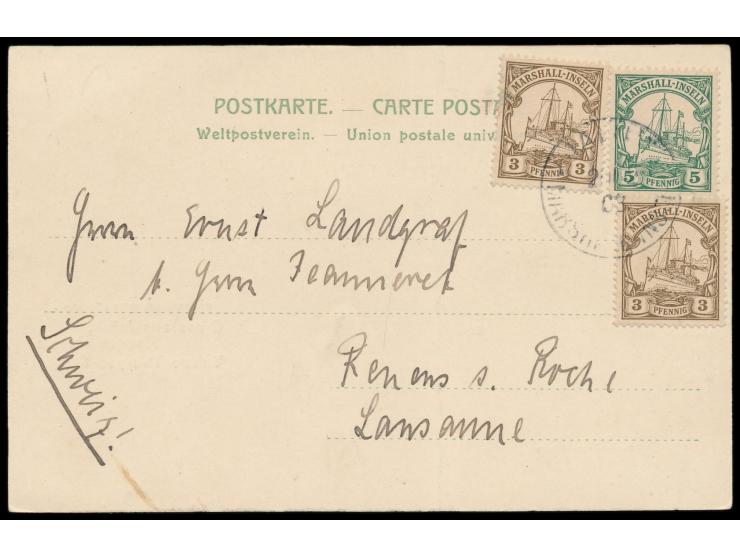 POSTKARTE. — CARTE POSTA
Weltpostverein. — Union postale univ
MARSHALL-INSELN
3 PFENNIG 3
MARSHALL-INSELN
5 PFENNIG 5
MARSHALL-INSELN
3 PFENNIG 3
Herrn Ernst Landgraf
Herrn Jeanneret
Schweiz!
Renens s. Roche
Lausanne